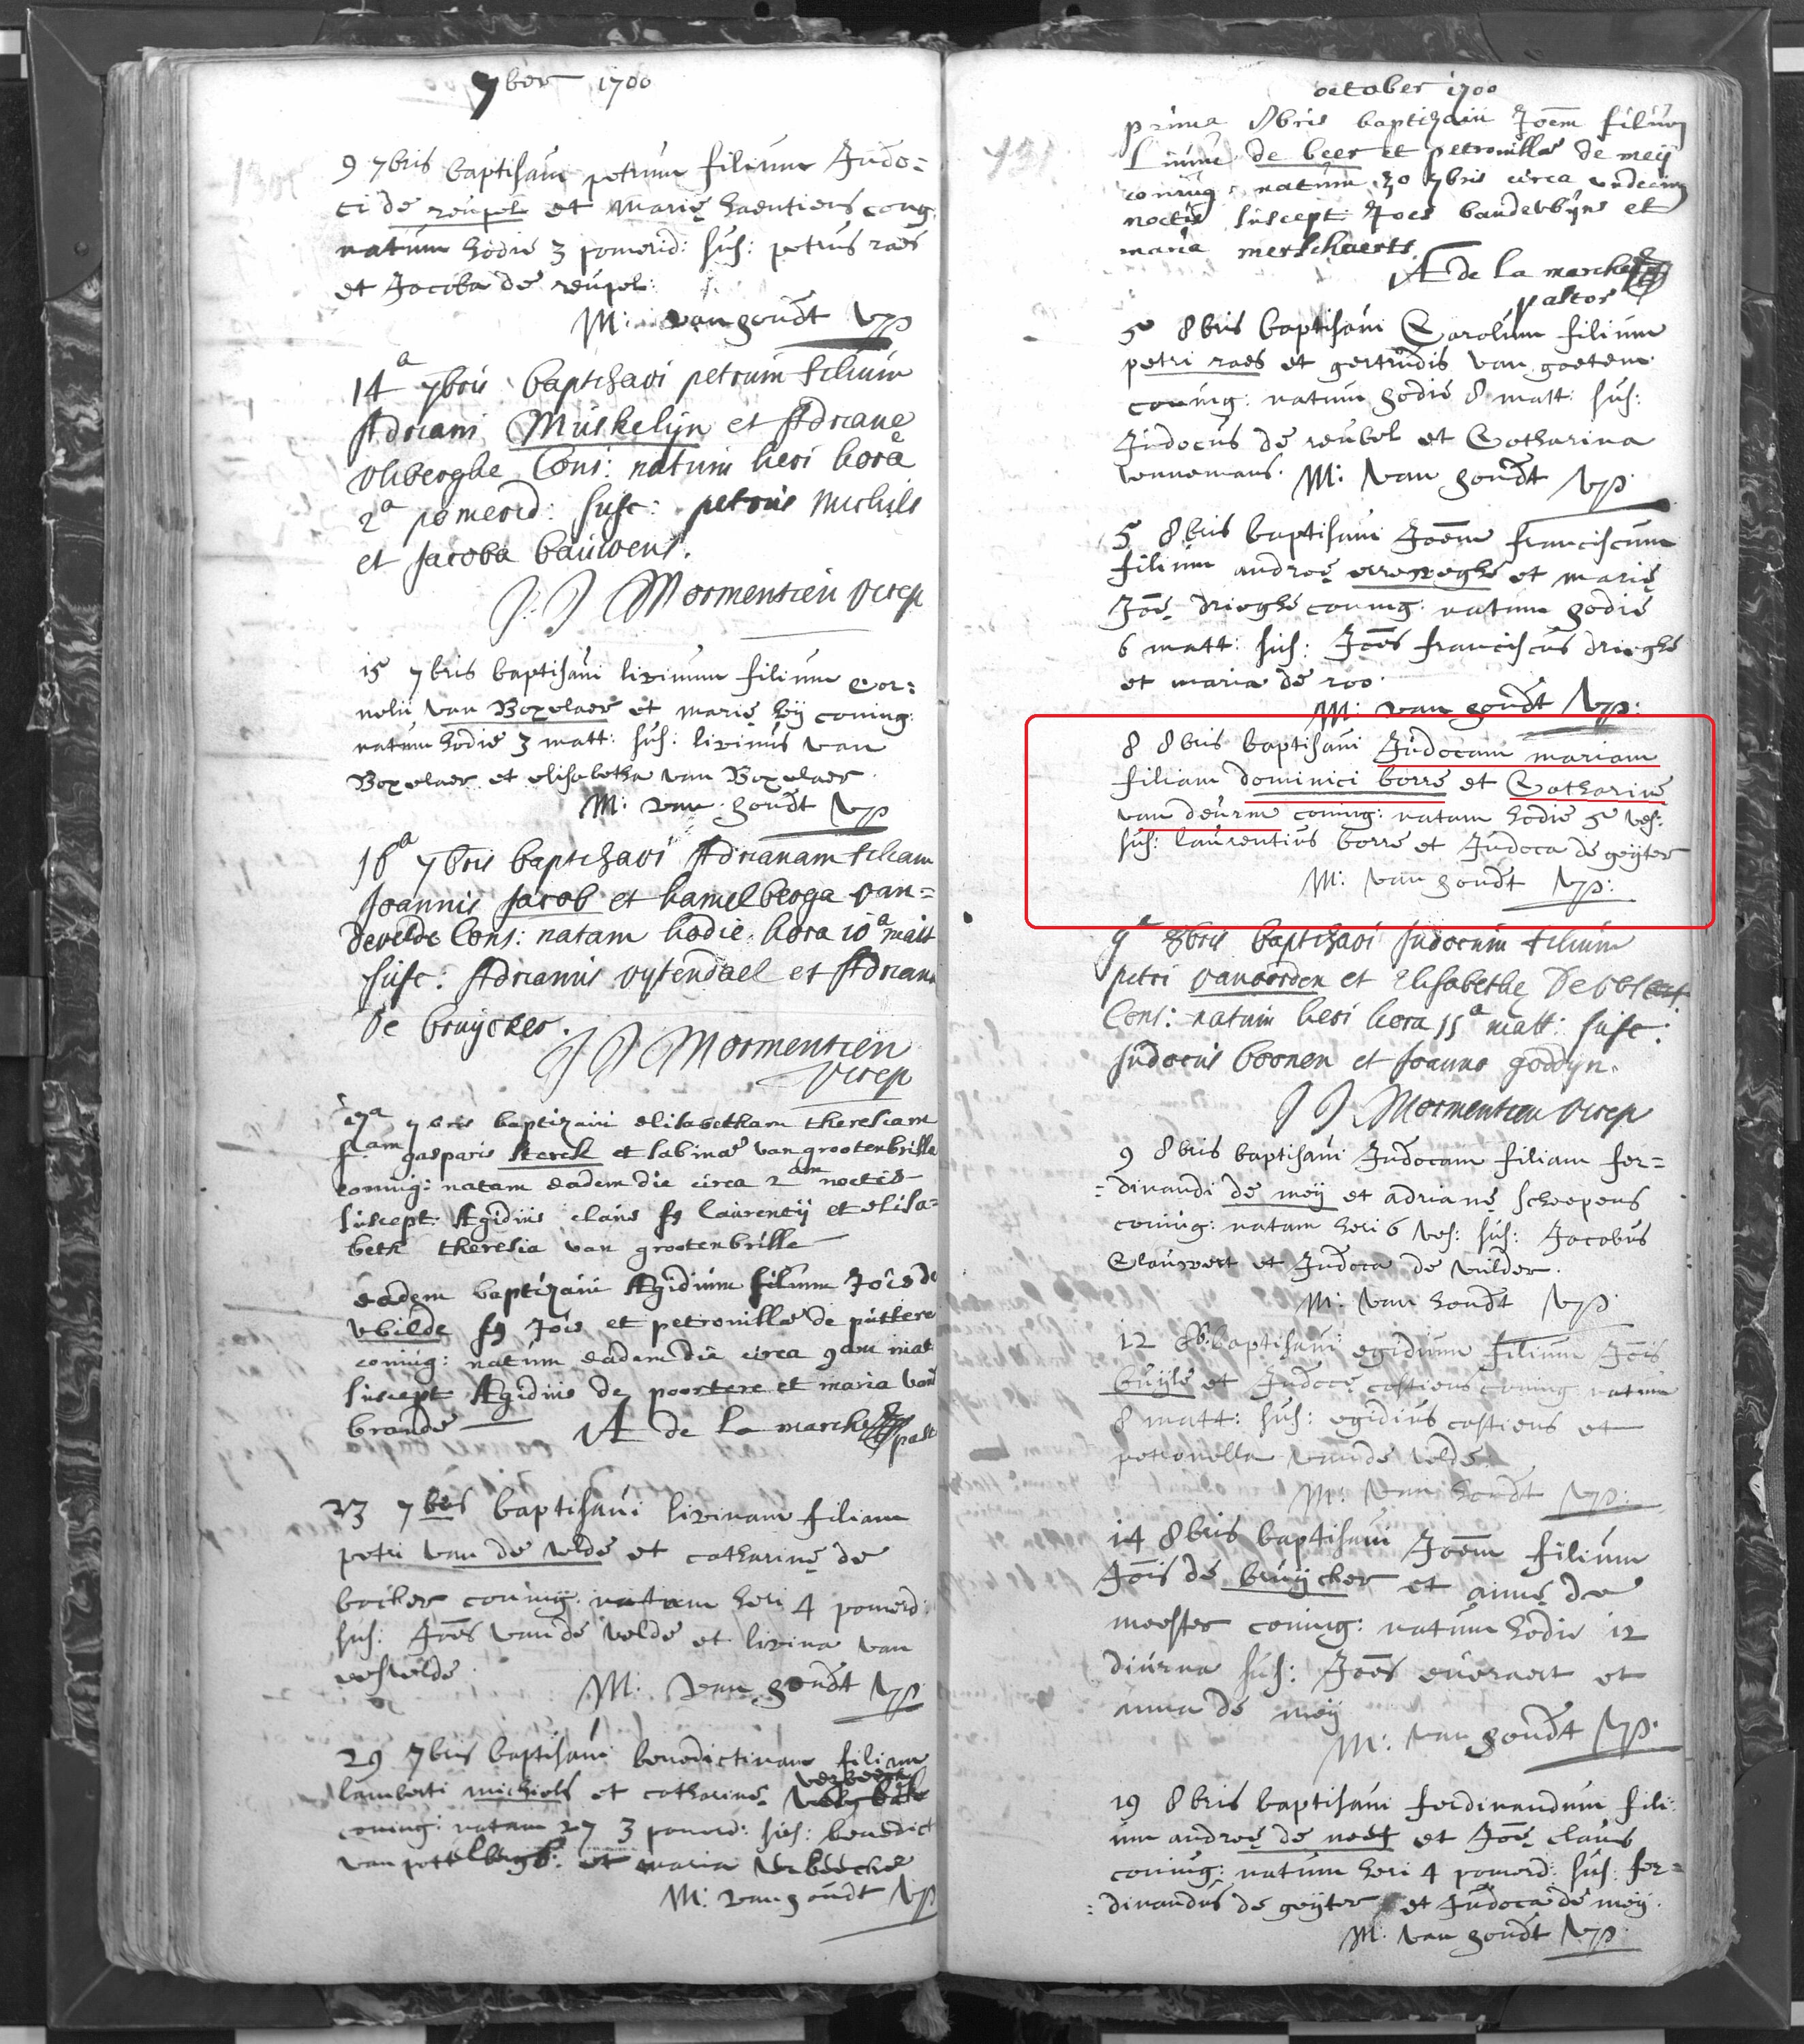 7ber 1700
9 7bris baptisavi petrum filium Judo=
ci de reupel et Marie haentiens coing.
natum hodie 3 pomerid: sus: petrus raes
et Jacoba de reupel:
M: van hondt vp
14a 7bris baptizavi petrum filium
Adriani Muskelijn et Adriane
vliberghe Coni: natum heri hora
2a pomerid: susc: petrus Michils
et Jacoba bauwens.
J: J Mormentien vicep
15 7bris baptisavi livinum filium Cor=
nelii van Boxelaer et marie heij coniug:
natum hodie 3 matt: sus: livinus van
Boxelaer et elisabetha van Boxelaer.
M: van hondt vp
16a 7bris baptizavi Adrianam filiam
Joannis Jacob et hamelberga van=
develde Cons: natam hodie hora 10a matt
susc: Adrianus vytendael et Adriana
De bruijcker.
J J Mormentien
vicep
17a 7bris baptizavi elisabetham theresiam
f.am gasparis sterck et sabinae van grootenbrille
coniug: natam eadem die circa 2dam noctis
suscept: Agidius claus fs laurentij et elisa=
beth theresia van grootenbrille
eadem baptizavi Agidium filium Jois de
vbilde fs Jois et petronillae de puttere
coniug: natum eadem die circa 9am mat
suscept Agidius de poortere et maria van
brande
A de la marche past
23 7bris baptisavi livinam filiam
petri van de velde et catharine de
backer coniug: natam heri 4 pomerd:
sus: Joes van de velde et livina van
M: van hondt vp
29 7bris baptisavi benedictinam filiam
lamberti michiels et catharine verbeeck
coniug: natam 27 3 pomerd: sus: benedict
van pottelbergh: et maria verbeecke
M: van hondt vp
october 1700
prima 8bris baptizavi Joem filium
de beer et petronillae de meij
coniug: natum 30 7bris circa undecim
noctis suscept: Joes vanderbijns et
maria merschaerts
A de la marche
pastor
5 8bris baptisavi Carolum filium
petri raes et gertrudis van goetem
coniug: natum hodie 8 matt: sus:
Judocus de reubel et Catharina
vennemans. M: van hondt vp.
5 8bris baptisavi Joem franciscum
filium andreę et marię
Joę drieghe coniug: natum hodie
6 matt: sus: Joes franciscus drieghe
et maria de roo.
M: van hondt vp:
8 8bris baptisavi Judocam mariam
filiam dominici borre et Catharine
van deurm coniug: natam hodie 5 ves:
sus: laurentius borre et Judoca de geijter
M: van hondt vp:
9a 8bris baptizavi Judocum filium
petri vanoorden et Elisabethę
Cons: natum heri hora 11a matt: susc:
Judocus boonen et Joanna goddyn.
J J. Mormentien vicep
9 8bris baptisavi Judocam filiam fer=
=dinandi de meij et adrianę scheepens
coniug: natam heri 6 ves: sus: Jacobus
Clauwert et Judoca de vuilder.
M: van hondt vp:
12 8b: baptisavi egidium filium Jois
buijle et Judocę castiens coniug natum
8 matt: sus: egidius castiens et
petronella van de velde:
M: van hondt vp:
14 8bris baptisavi Joem filium
Jois de bruijcker et annę de
meester coniug: natum hodie 12
diurna sus: Joes everaert et
anna de meij
M: van hondt vp:
19 8bris baptisavi ferdinandum fili:
um andreę de neef et Joę claus
coniug: natum heri 4 pomerd: sus: fer=
:dinandus de geijter et Judoca de meij.
M: van hondt vp: